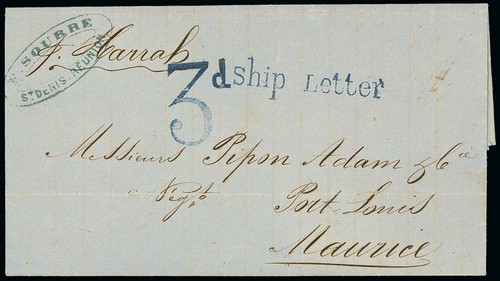 SOURRE
ST DENIS-REUNION
p. Harrah
3d Ship Letter
Messieurs Pipon Adam & Cie
Negts
Port-Louis
Maurice